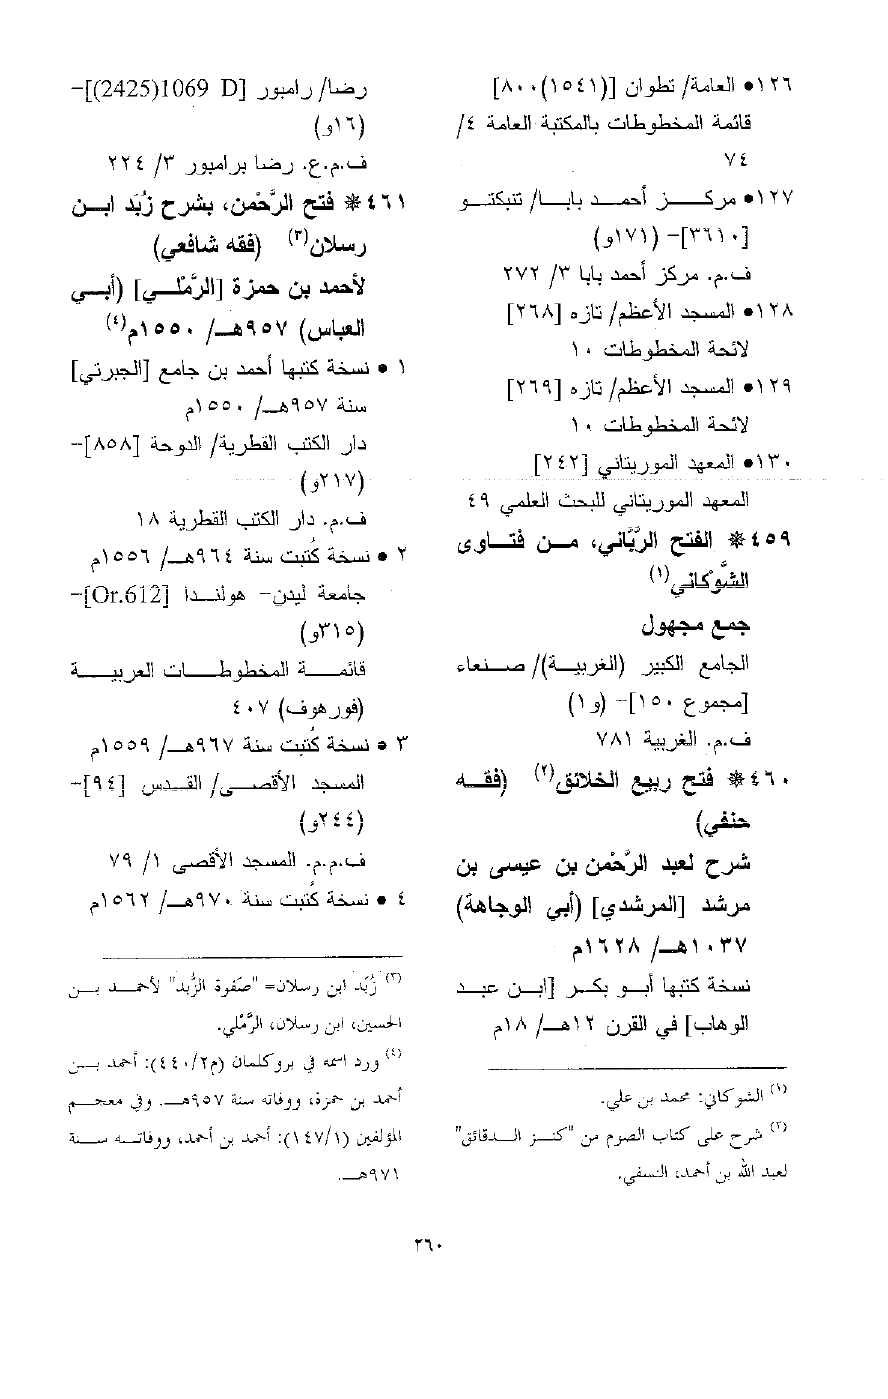 ١٢٦• العامة/ تطوان [(١٥٤١)٨٠٠]
قائمة المخطوطات بالمكتبة العامة ٤/
٧٤
١٢٧• مركز أحمد بابا/ تنبكتو
[٣٦١٠]– (١٧١و)
ف.م. مركز أحمد بابا ٣/ ٢٧٢
١٢٨• المسجد الأعظم/ تازه [٢٦٨]
لائحة المخطوطات ١٠
١٢٩• المسجد الأعظم/ تازه [٢٦٩]
لائحة المخطوطات ١٠
١٣٠• المعهد الموريتاني [٢٤٢]
المعهد الموريتاني للبحث العلمي ٤٩
٤٥٩* الفتح الربَّاني، من فتاوى
الشَّوْكاني(١)
جمع مجهول
الجامع الكبير (الغربية)/ صنعاء
[مجموع ١٥٠]– (و١)
ف.م. الغربية ٧٨١
٤٦٠* فتح ربيع الخلائق(٢) (فقه
حنفي)
شرح لعبد الرَّحْمن بن عيسى بن
مرشد [المرشدي] (أبي الوجاهة)
١٠٣٧هـ/ ١٦٢٨م
نسخة كتبها أبو بكر [ابن عبد
الوهاب] في القرن ١٢هـ/ ١٨م
(١) الشوكاني: محمد بن علي.
(٢) شرح على كتاب الصوم من "كنز الدقائق"
لعبد الله بن أحمد، النسفي.
رضا/ رامبور [1069 D(2425)]–
(١٦و)
ف.م.ع. رضا برامبور ٣/ ٢٢٤
٤٦١* فتح الرَّحْمن، بشرح زُبَد ابن
رسلان(٣) (فقه شافعي)
لأحمد بن حمزة [الرَّمْلي] (أبي
العباس) ٩٥٧هـ/ ١٥٥٠م(٤)
١ • نسخة كتبها أحمد بن جامع [الجبرتي]
سنة ٩٥٧هـ/ ١٥٥٠م
دار الكتب القطرية/ الدوحة [٨٥٨]–
(٢١٧و)
ف.م. دار الكتب القطرية ١٨
٢ • نسخة كُتبت سنة ٩٦٤هـ/ ١٥٥٦م
جامعة ليدن– هولندا [Or.612]–
(٣١٥و)
قائمة المخطوطات العربية
(فورهوف) ٤٠٧
٣ • نسخة كُتبت سنة ٩٦٧هـ/ ١٥٥٩م
المسجد الأقصى/ القدس [٩٤]–
(٢٤٤و)
ف.م.م. المسجد الأقصى ١/ ٧٩
٤ • نسخة كُتبت سنة ٩٧٠هـ/ ١٥٦٢م
(٣) زُبَد ابن رسلان= "صَفوة الزُّبد" لأحمد بن
الحسين، ابن رسلان، الرَّمْلي.
(٤) ورد اسمه في بروكلمان (م٤٤٠/٢): أحمد بن
أحمد بن حمزة، ووفاته سنة ٩٥٧هـ. وفي معجم
المؤلفين (١٤٧/١): أحمد بن أحمد، ووفاته سنة
٩٧١هـ.
٢٦٠